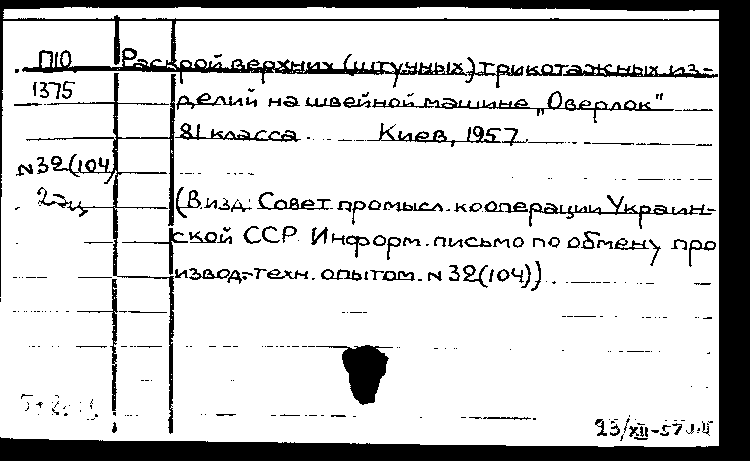 П10 Раскрой верхних (штучных) трикотажных из-
1375 делий на швейной машине „Оверлок"
81 класса Киев, 1957
N32(104)
2 эц (В изд: Совет промысл. кооперации Украин-
ской ССР. Информ. письмо по обмену про
извод.-техн. опытом. N 32(104))
23/XII-57